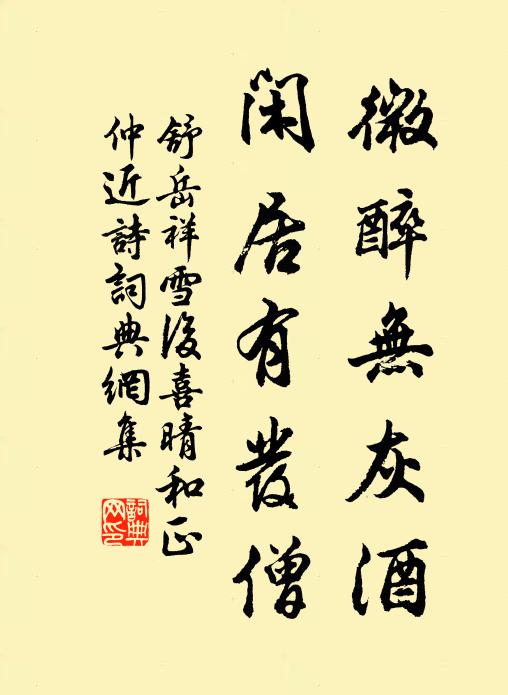 微醉無灰酒
閑居有發僧
舒岳祥雪後喜晴和正
仲近詩詞典網集
詞典網印